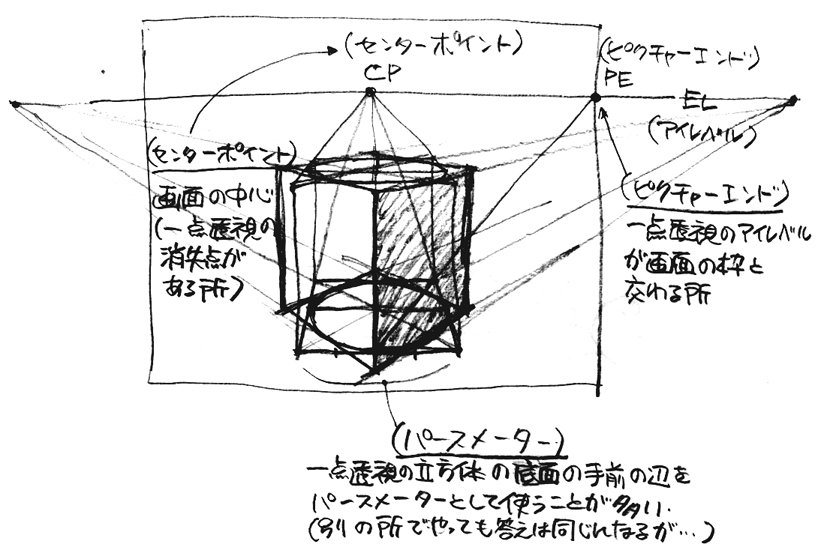 (センターポイント)
CP
(ピクチャーエンド)
PE
EL
(アイレベル)
(センターポイント)
画面の中心
(一点透視の
消失点が
ある所)
(ピクチャーエンド)
一点透視のアイレベル
が画面の枠と
交わる所
(パースメーター)
一点透視の立方体の底面の手前の辺を
パースメーターとして使うことが多い.
(別の所でやっても答えは同じになるが…)